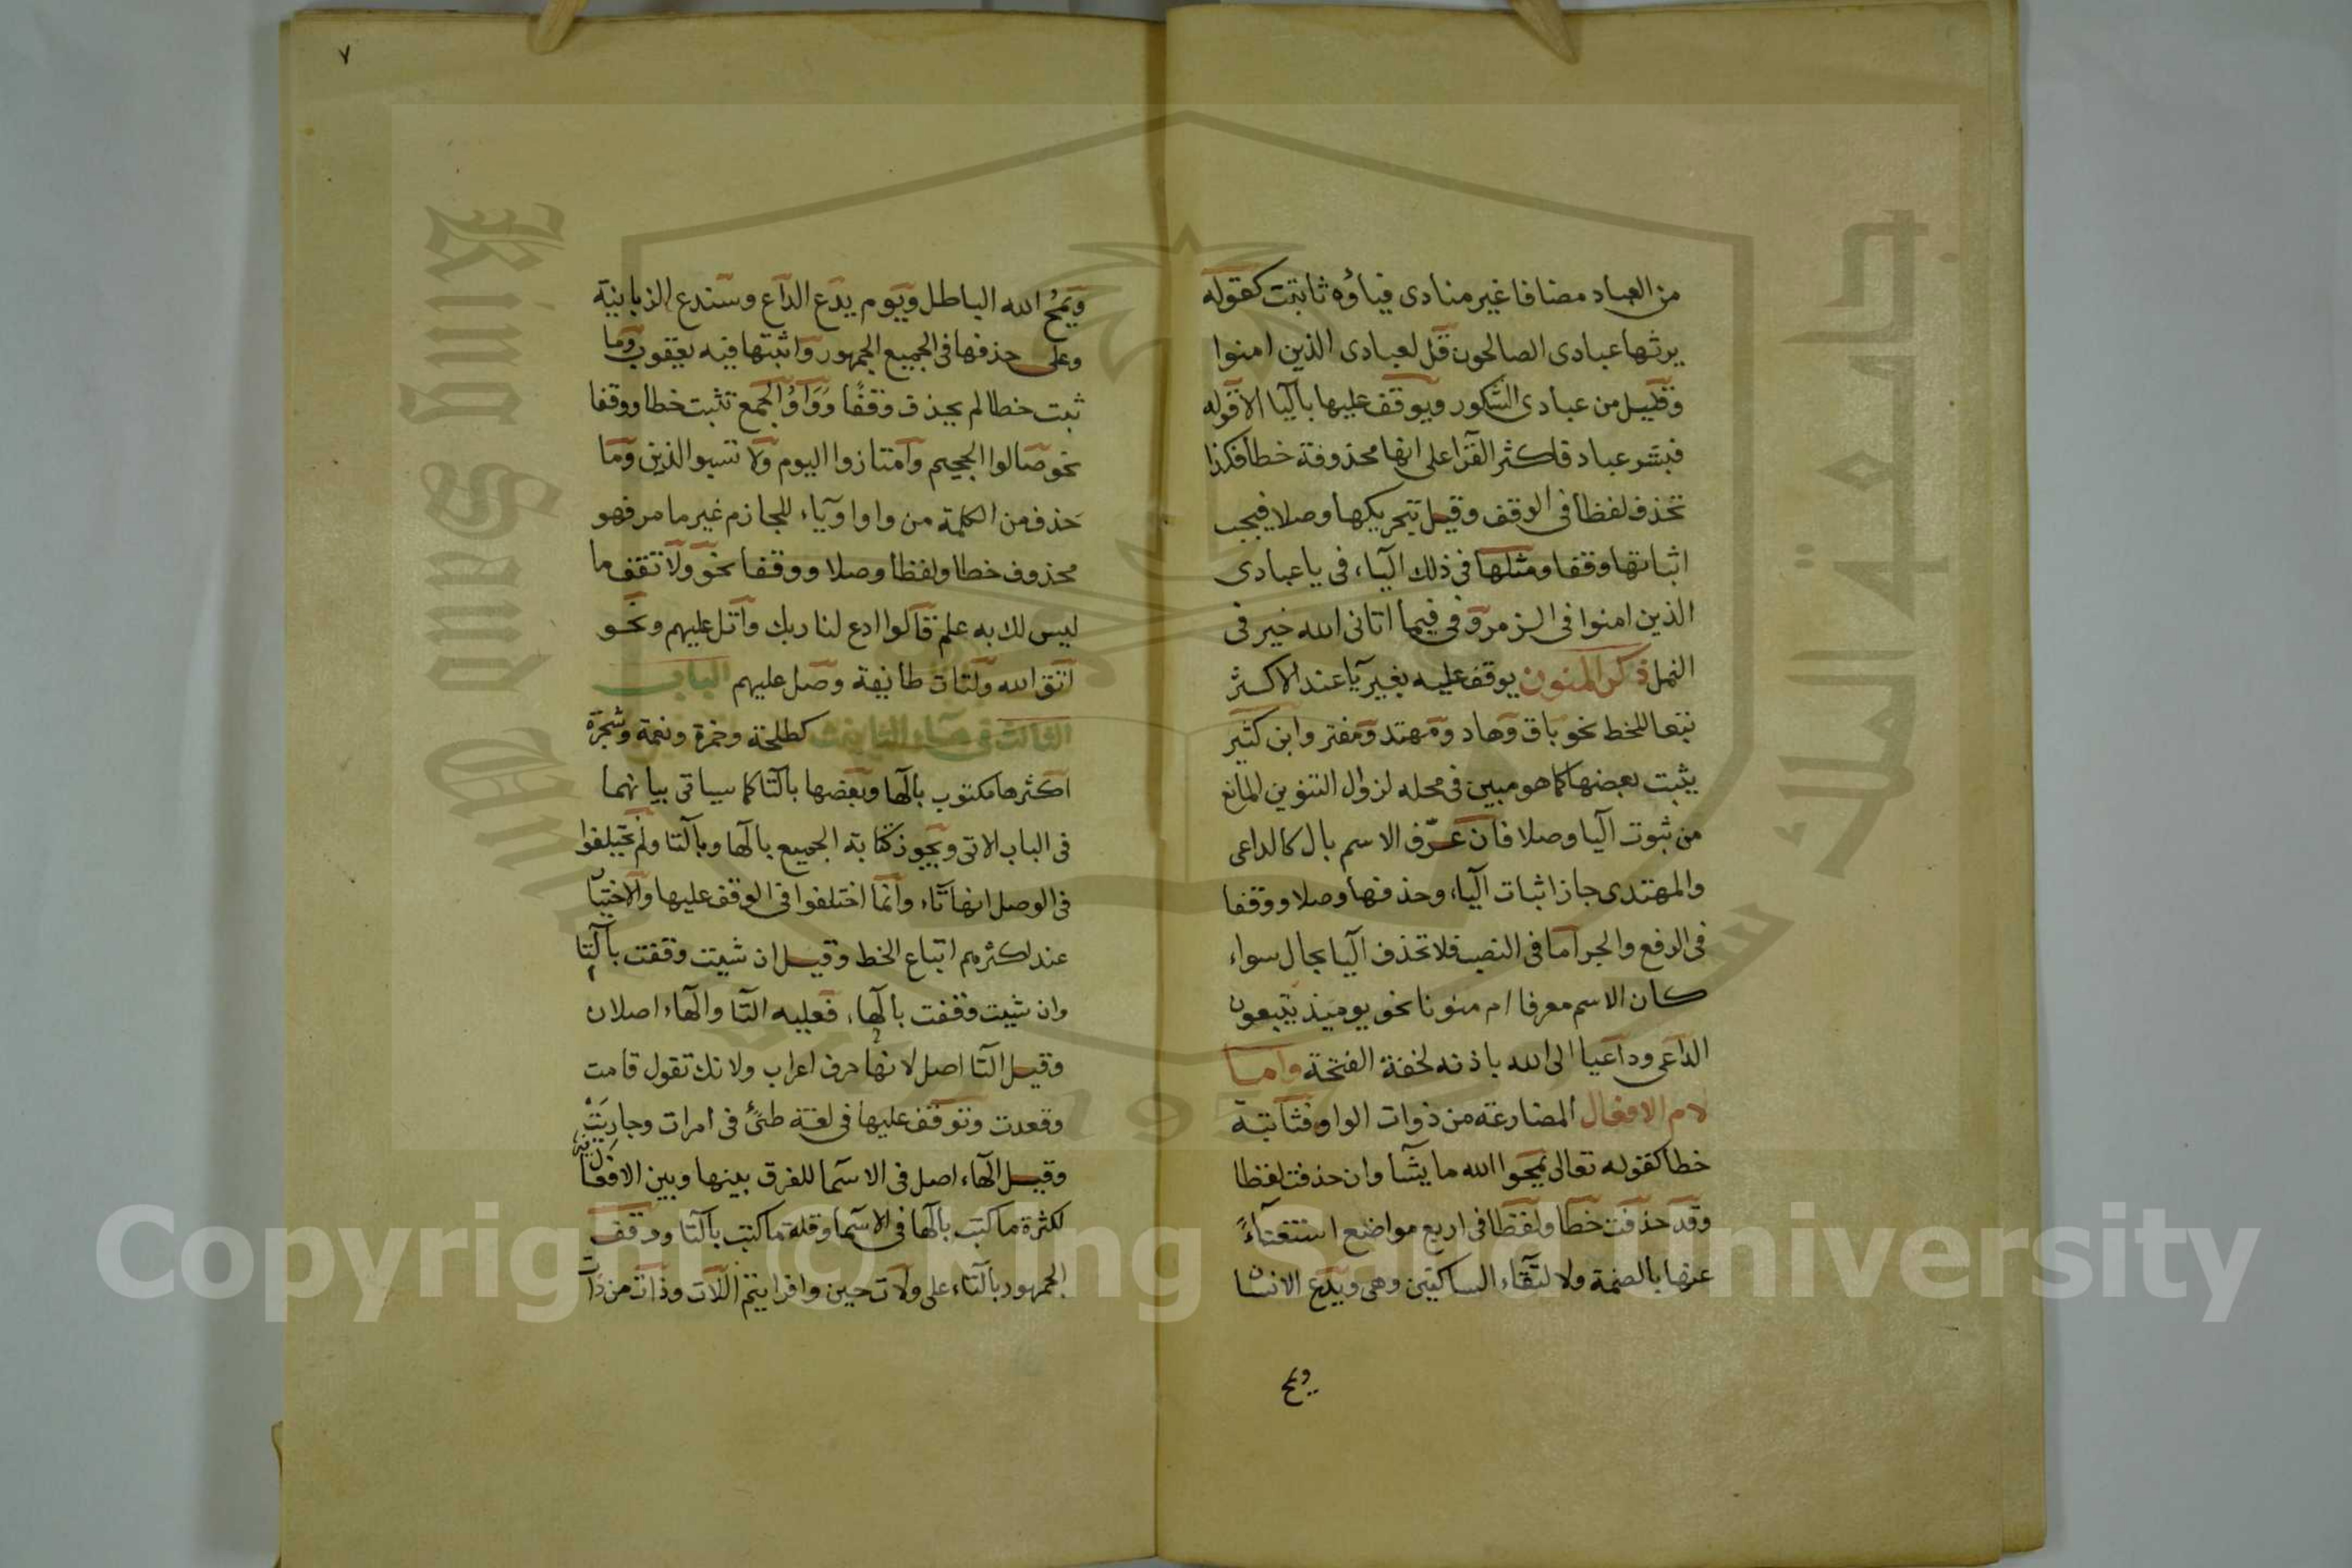 من العباد مضافا غير منادى فياؤه ثابتت كقوله
يرثها عبادى الصالحون قل لعبادى الذين امنوا
وقليل من عبادى الشكور ويوقف عليها باليا الا قوله
فبشر عباد فاكثر القرا على انها محذوفة خطا فكذا
تحذف لفظا فى الوقف وقيل بتحريكها وصلا فيجب
اثباتها وقفا ومثلها فى ذلك الياء فى يا عبادى
الذين امنوا فى الزمر وفى فيما اتانى الله خير فى
النمل ذكر المنون يوقف عليه بغير يا عند الاكثر
تبعا للخط نحو باق وهاد ومهتد ومفتر وابن كثير
يثبت بعضها كما هو مبين فى محله لزوال التنوين المانع
من ثبوت اليا وصلا فان عرّف الاسم بال كالداعى
والمهتدى جاز اثبات الياء وحذفها وصلا ووقفا
فى الرفع والجر اما فى النصب فلا تحذف اليا بحال سواء
كان الاسم معرفا ام منونا نحو يوميذ يتبعون
الداعى وداعيا الى الله باذنه لخفة الفتحة واما
لام الافعال المضارعة من ذوات الواو فثابتة
خطا كقوله تعالى يمحوا الله ما يشا وان حذفت لفظا
وقد حذفت خطا ولفظا فى اربع مواضع استغناءً
عنها بالضمة ولالتقاء الساكنين وهى ويدع الانسان
ويمح
٧
ويمحُ الله الباطل ويوم يدع الداع وسندع الزبانية
وعلى حذفها فى الجميع الجمهور واثبتها فيه يعقوب وما
ثبت خطا لم يحذف وقفًا وواوُ الجمع تثبت خطا ووقفا
نحو صالوا الجحيم وامتازوا اليوم ولا تسبوا الذين وما
حذف من الكلمة من واو او ياء للجازم غير ما مر فهو
محذوف خطا ولفظا وصلا ووقفا نحو ولا تقف ما
ليس لك به علم قالوا ادع لنا ربك واتل عليهم ونحو
اتق الله ولتات طايفة وصل عليهم الباب
الثالث فى هاء التانيث كطلحة وحمزة ونعمة وشجرة
اكثرها مكتوب بالها وبعضها بالتا كما سياتى بيانهما
فى الباب الاتى ويجوز كتابة الجميع بالها وبالتا ولم يختلفوا
فى الوصل انها تاء وانما اختلفوا فى الوقف عليها والاختيا
عند اكثرهم اتباع الخط وقيل ان شيت وقفت بالتا
وان شيت وقفت بالها، فعليه التا والهاء اصلان
وقيل التا اصل لانها حرف اعراب ولانك تقول قامت
وقعدت وتوقف عليها فى لغة طئ فى امرات وجاريتْ
وقيل الهاء اصل فى الاسما للفرق بينها وبين الافعال
لكثرة ما كتب بالها فى الاسما وقلة ما كتب بالتا ووقف
الجمهور بالتاء على ولات حين وافرايتم اللات وذات من ذات
Copyright © King Saud University
King Saud University
جامعة الملك سعود